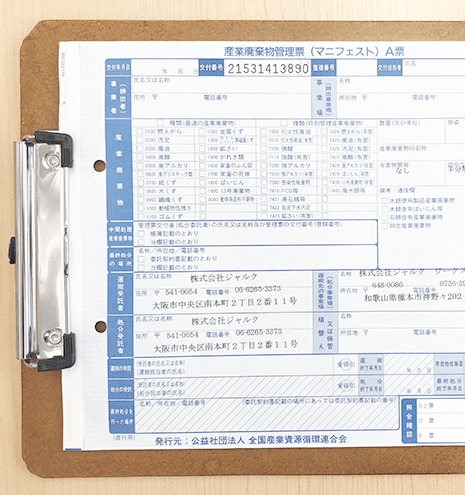 産業廃棄物管理票（マニフェスト）A票
交付年月日 年 月 日 交付番号 21531413890 整理番号 交付担当者 氏名
事業者（排出者） 氏名又は名称
住所 〒 電話番号
事業場（排出事業場） 名称
所在地 〒 電話番号
産業廃棄物
種類（普通の産業廃棄物） 種類（特別管理産業廃棄物） 数量(及び単位)
0100 燃えがら
0200 汚泥
0300 廃油
0400 廃酸
0500 廃アルカリ
0600 廃プラスチック類
0700 紙くず
0800 木くず
0900 繊維くず
1000 動植物性残さ
1100 ゴムくず
1200 金属くず
1400 鉱さい
1500 がれき類
1600 家畜のふん尿
1700 家畜の死体
1800 ばいじん
1900 13号廃棄物
4000 動物系固形不要物
7000 引火性廃油
7100 強酸
7200 強アルカリ
7300 感染性廃棄物
7410 PCB等
7421 廃石綿等
7422 指定下水汚泥
7423 鉱さい(有害)
産業廃棄物の名称
有害物質等 なし
備考・通信欄
水銀使用製品産業廃棄物
水銀含有ばいじん等
石綿含有産業廃棄物
特定産業廃棄物
中間処理産業廃棄物
管理票交付者(処分委託者)の氏名又は名称及び管理票の交付番号(登録番号)
帳簿記載のとおり
当欄記載のとおり
最終処分の場所
名称／所在地／電話番号
委託契約書記載のとおり
当欄記載のとおり
運搬受託者 氏名又は名称 株式会社ジャルク
住所 〒 541-0054 電話番号 06-6265-3373
大阪市中央区南本町2丁目2番11号
運搬先の事業場（処分事業場） 名称 株式会社ジャルク
所在地 〒 648-0086 0736-39
和歌山県橋本市神野々202-
処分受託者 氏名又は名称 株式会社ジャルク
住所 〒 541-0054 電話番号 06-6265-3373
大阪市中央区南本町2丁目2番11号
積替え又は保管 名称
所在地 〒 電話番号
運搬の受託 (受託者の氏名又は名称)
(運搬担当者の氏名) 受領印 運搬終了年月日 年 月 日 有価物拾集量
処分の受託 (受託者の氏名又は名称)
(処分担当者の氏名) 受領印 処分終了年月日 年 月 日
最終処分を行った場所 名称／所在地／電話番号 (委託契約書記載の場所にあっては委託契約書記載の番号)
照合確認 B2票
D 票
E 票
(直行用) 発行元：公益社団法人 全国産業資源循環連合会